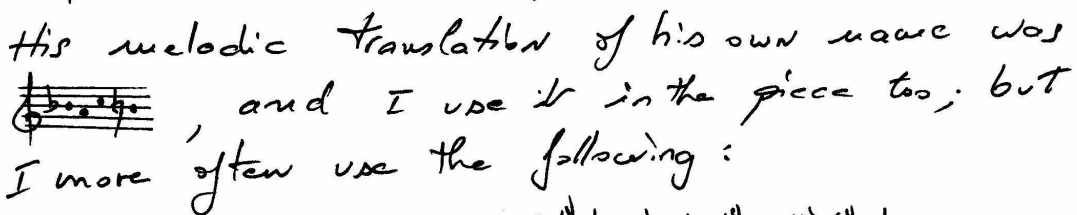 His melodic translation of his own name was
, and I use it in the piece too; but
I more often use the following: